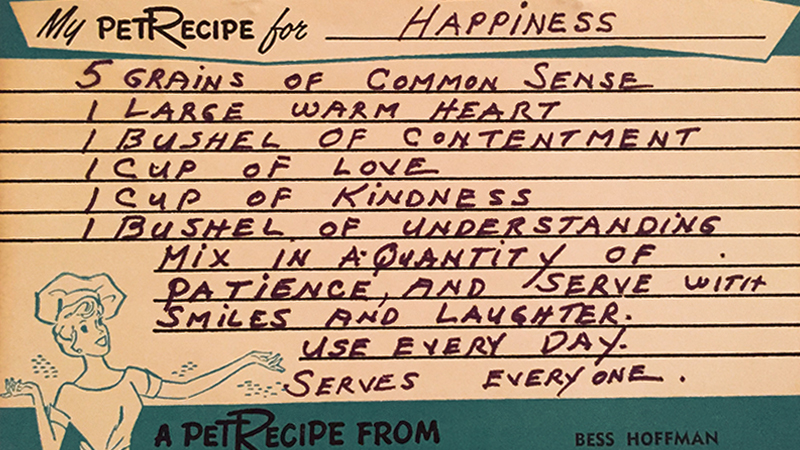 My PETRECIPE for HAPPINESS
5 GRAINS OF COMMON SENSE
1 LARGE WARM HEART
1 BUSHEL OF CONTENTMENT
1 CUP OF LOVE
1 CUP OF KINDNESS
1 BUSHEL OF UNDERSTANDING
MIX IN A QUANTITY OF
PATIENCE, AND SERVE WITH
SMILES AND LAUGHTER.
USE EVERY DAY.
SERVES EVERYONE.
A PETRECIPE FROM BESS HOFFMAN